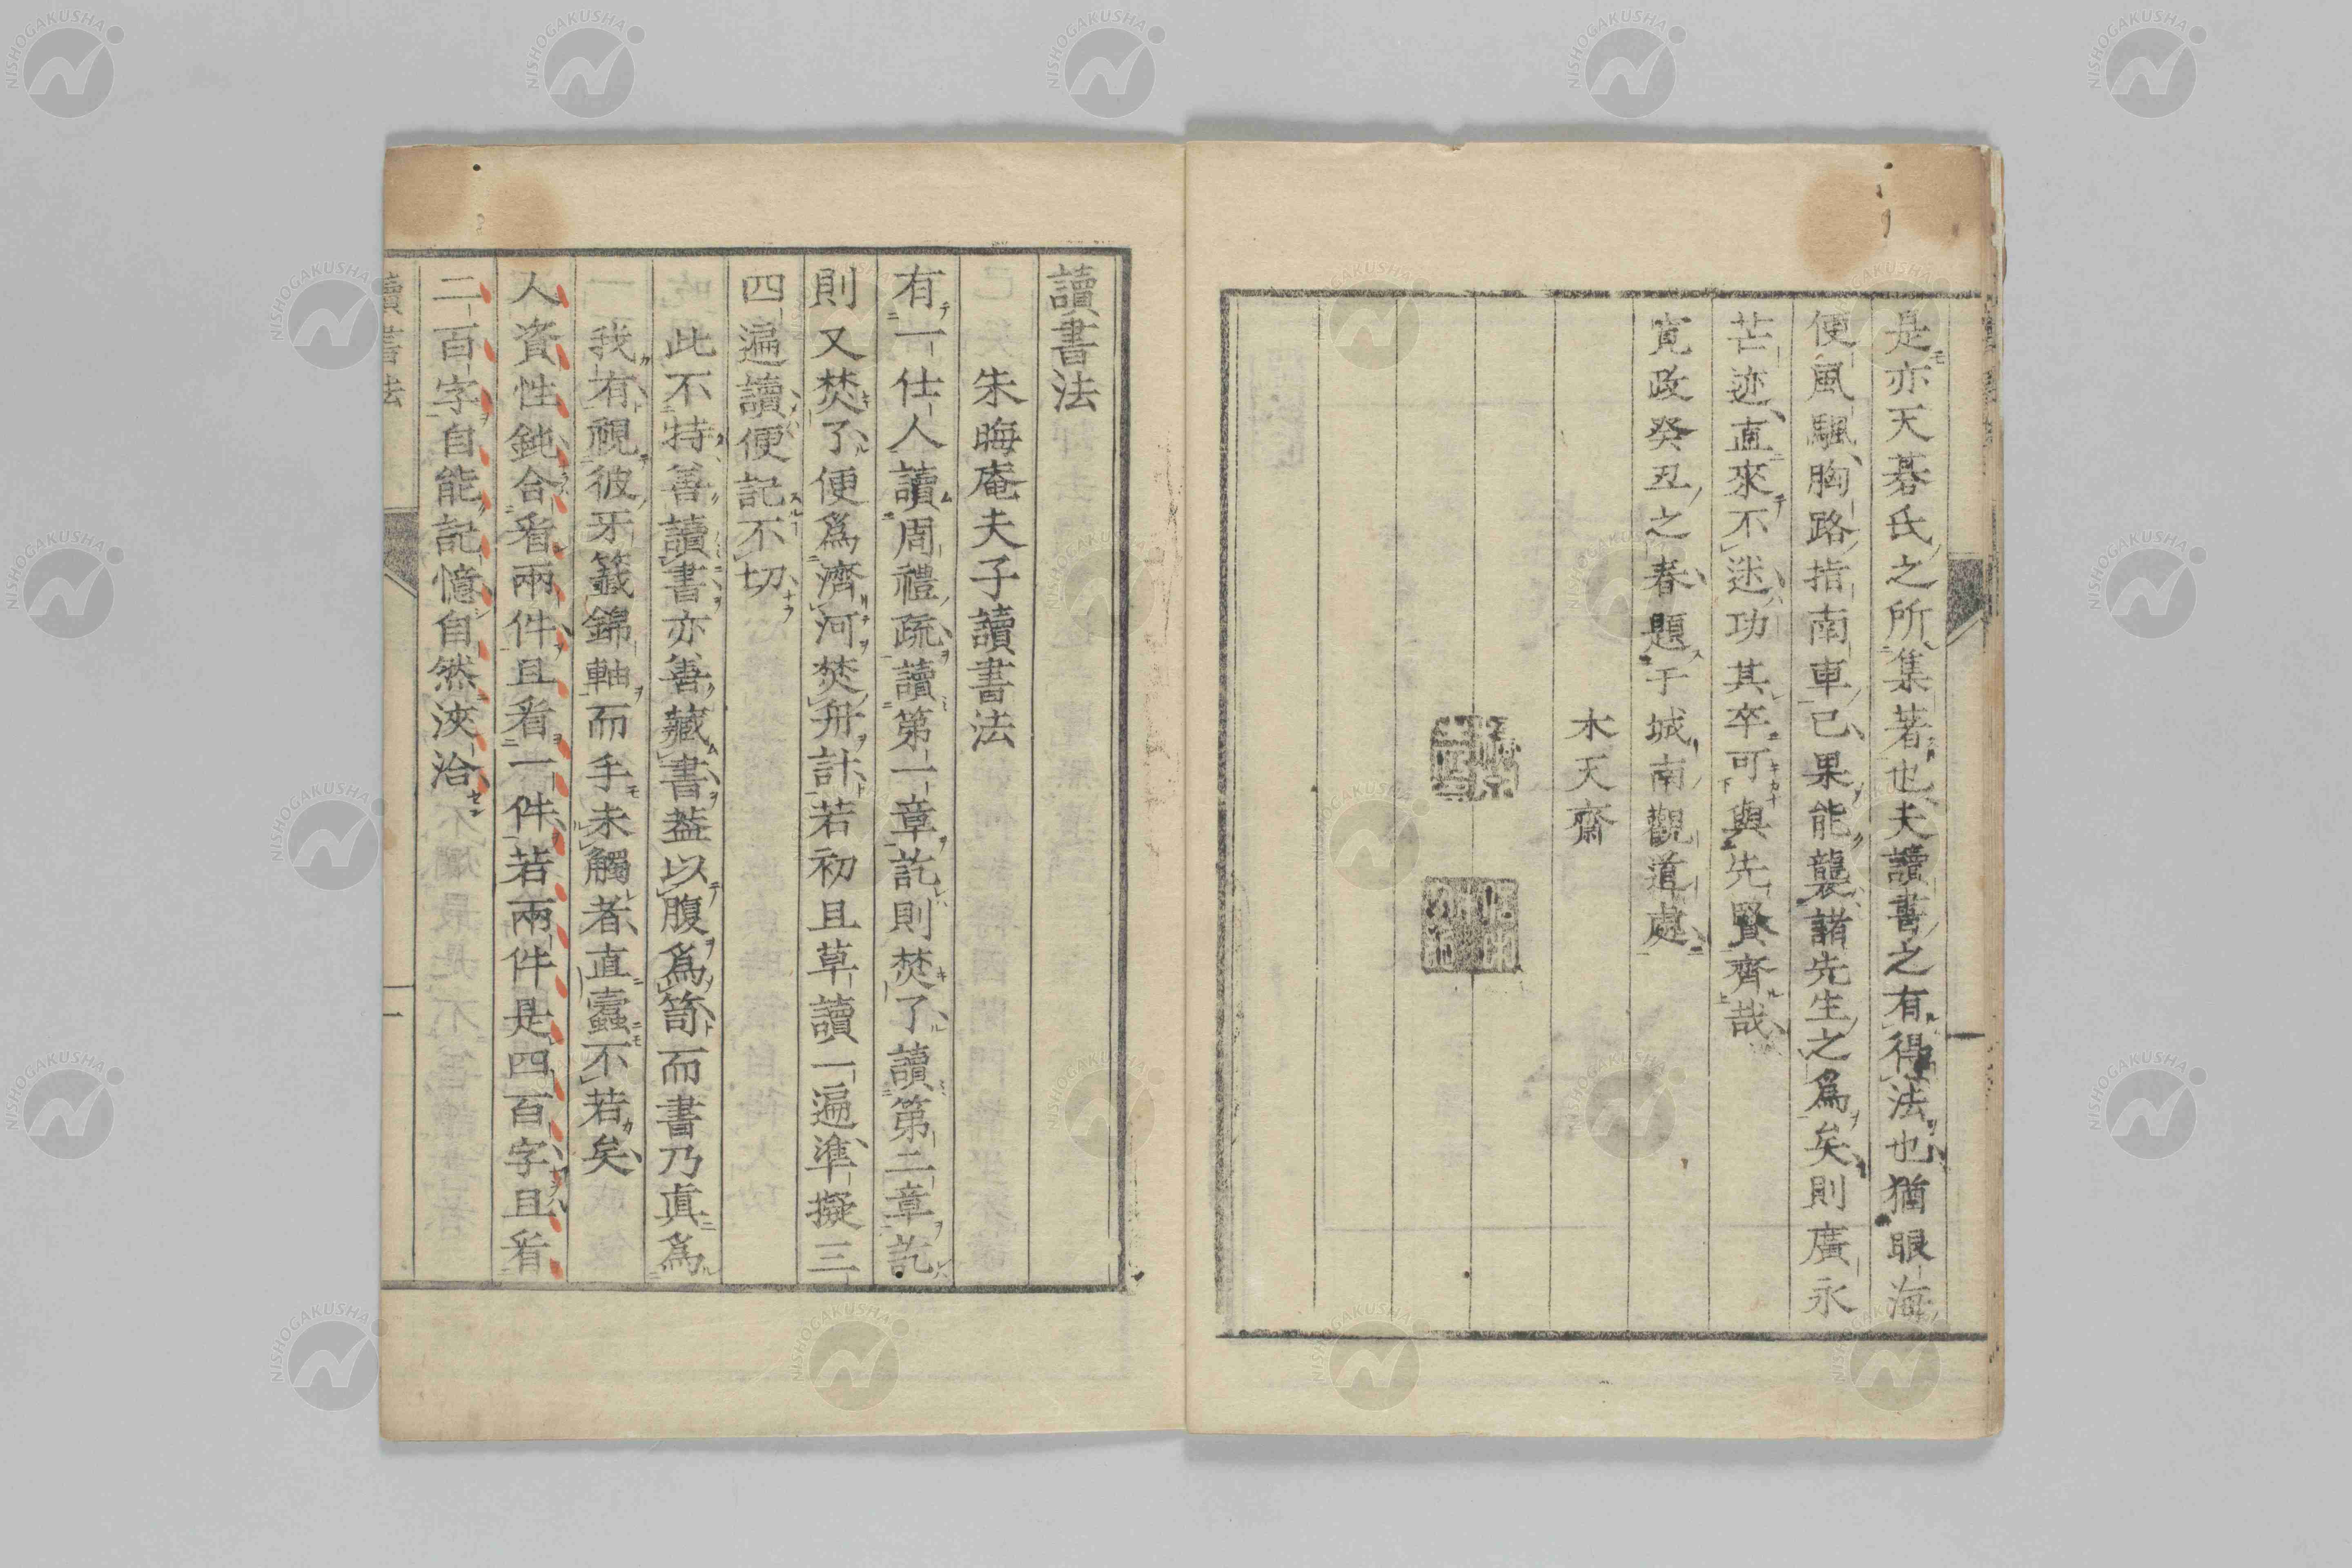 是亦天碁氏之所集著也夫讀書之有得法也猶眼海
便風颿胸路指南車已果能襲諸先生之爲矣則廣永
芒迹直來不迷功其卒可與先賢齊哉
寛政癸丑之春題于城南觀道處
木天齋
讀書法
朱晦庵夫子讀書法
有一仕人讀周禮疏讀第一章訖則焚了讀第二章訖
則又焚了便爲濟河焚舟計若初且草讀一遍準擬三
四遍讀便記不切
此不特善讀書亦善藏書葢以腹爲笥而書乃眞爲
我有視彼牙籖錦軸而手未觸者直蠹不若矣
人資性鈍合看兩件且看一件若兩件是四百字且看
二百字自能記憶自然浹洽
讀書法
一
NISHOGAKUSHA